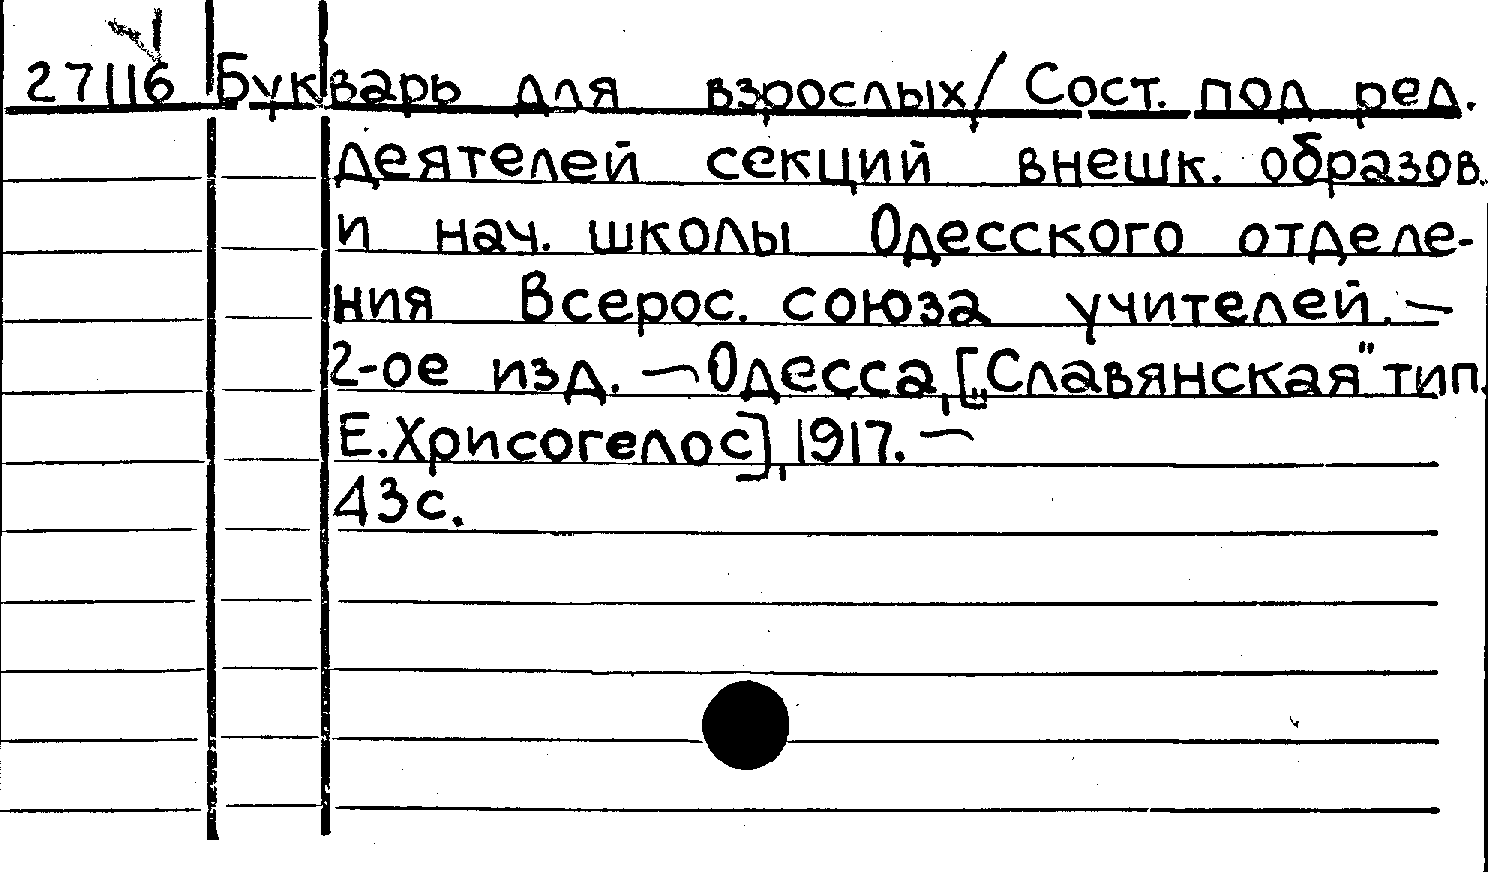 27116 Букварь для взрослых/ Сост. под ред.
деятелей секций внешк. образов.
и нач. школы Одесского отделе-
ния Всерос. союза учителей. —
2-ое изд. — Одесса, [„Славянская" тип.
Е. Хрисогелос], 1917. —
43 с.